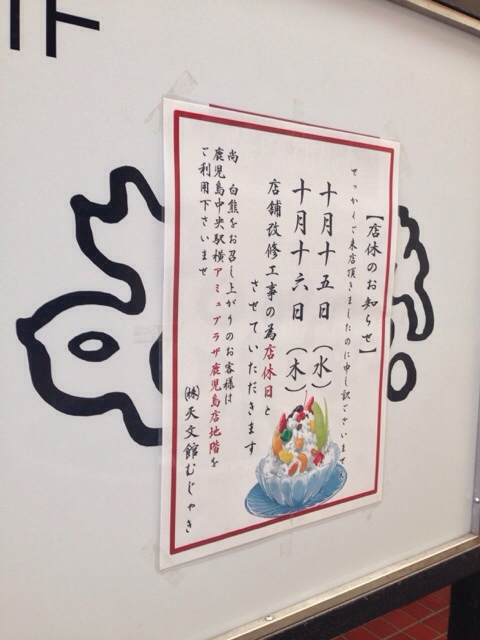 【店休のお知らせ】
せっかくご来店頂きましたのに申し訳ございません。
十月十五日（水）
十月十六日（木）
店舗改修工事の為店休日と
させていただきます
尚 白熊をお召し上がりのお客様は
鹿児島中央駅横アミュプラザ鹿児島店地階を
ご利用下さいませ
㈱天文館むじゃき